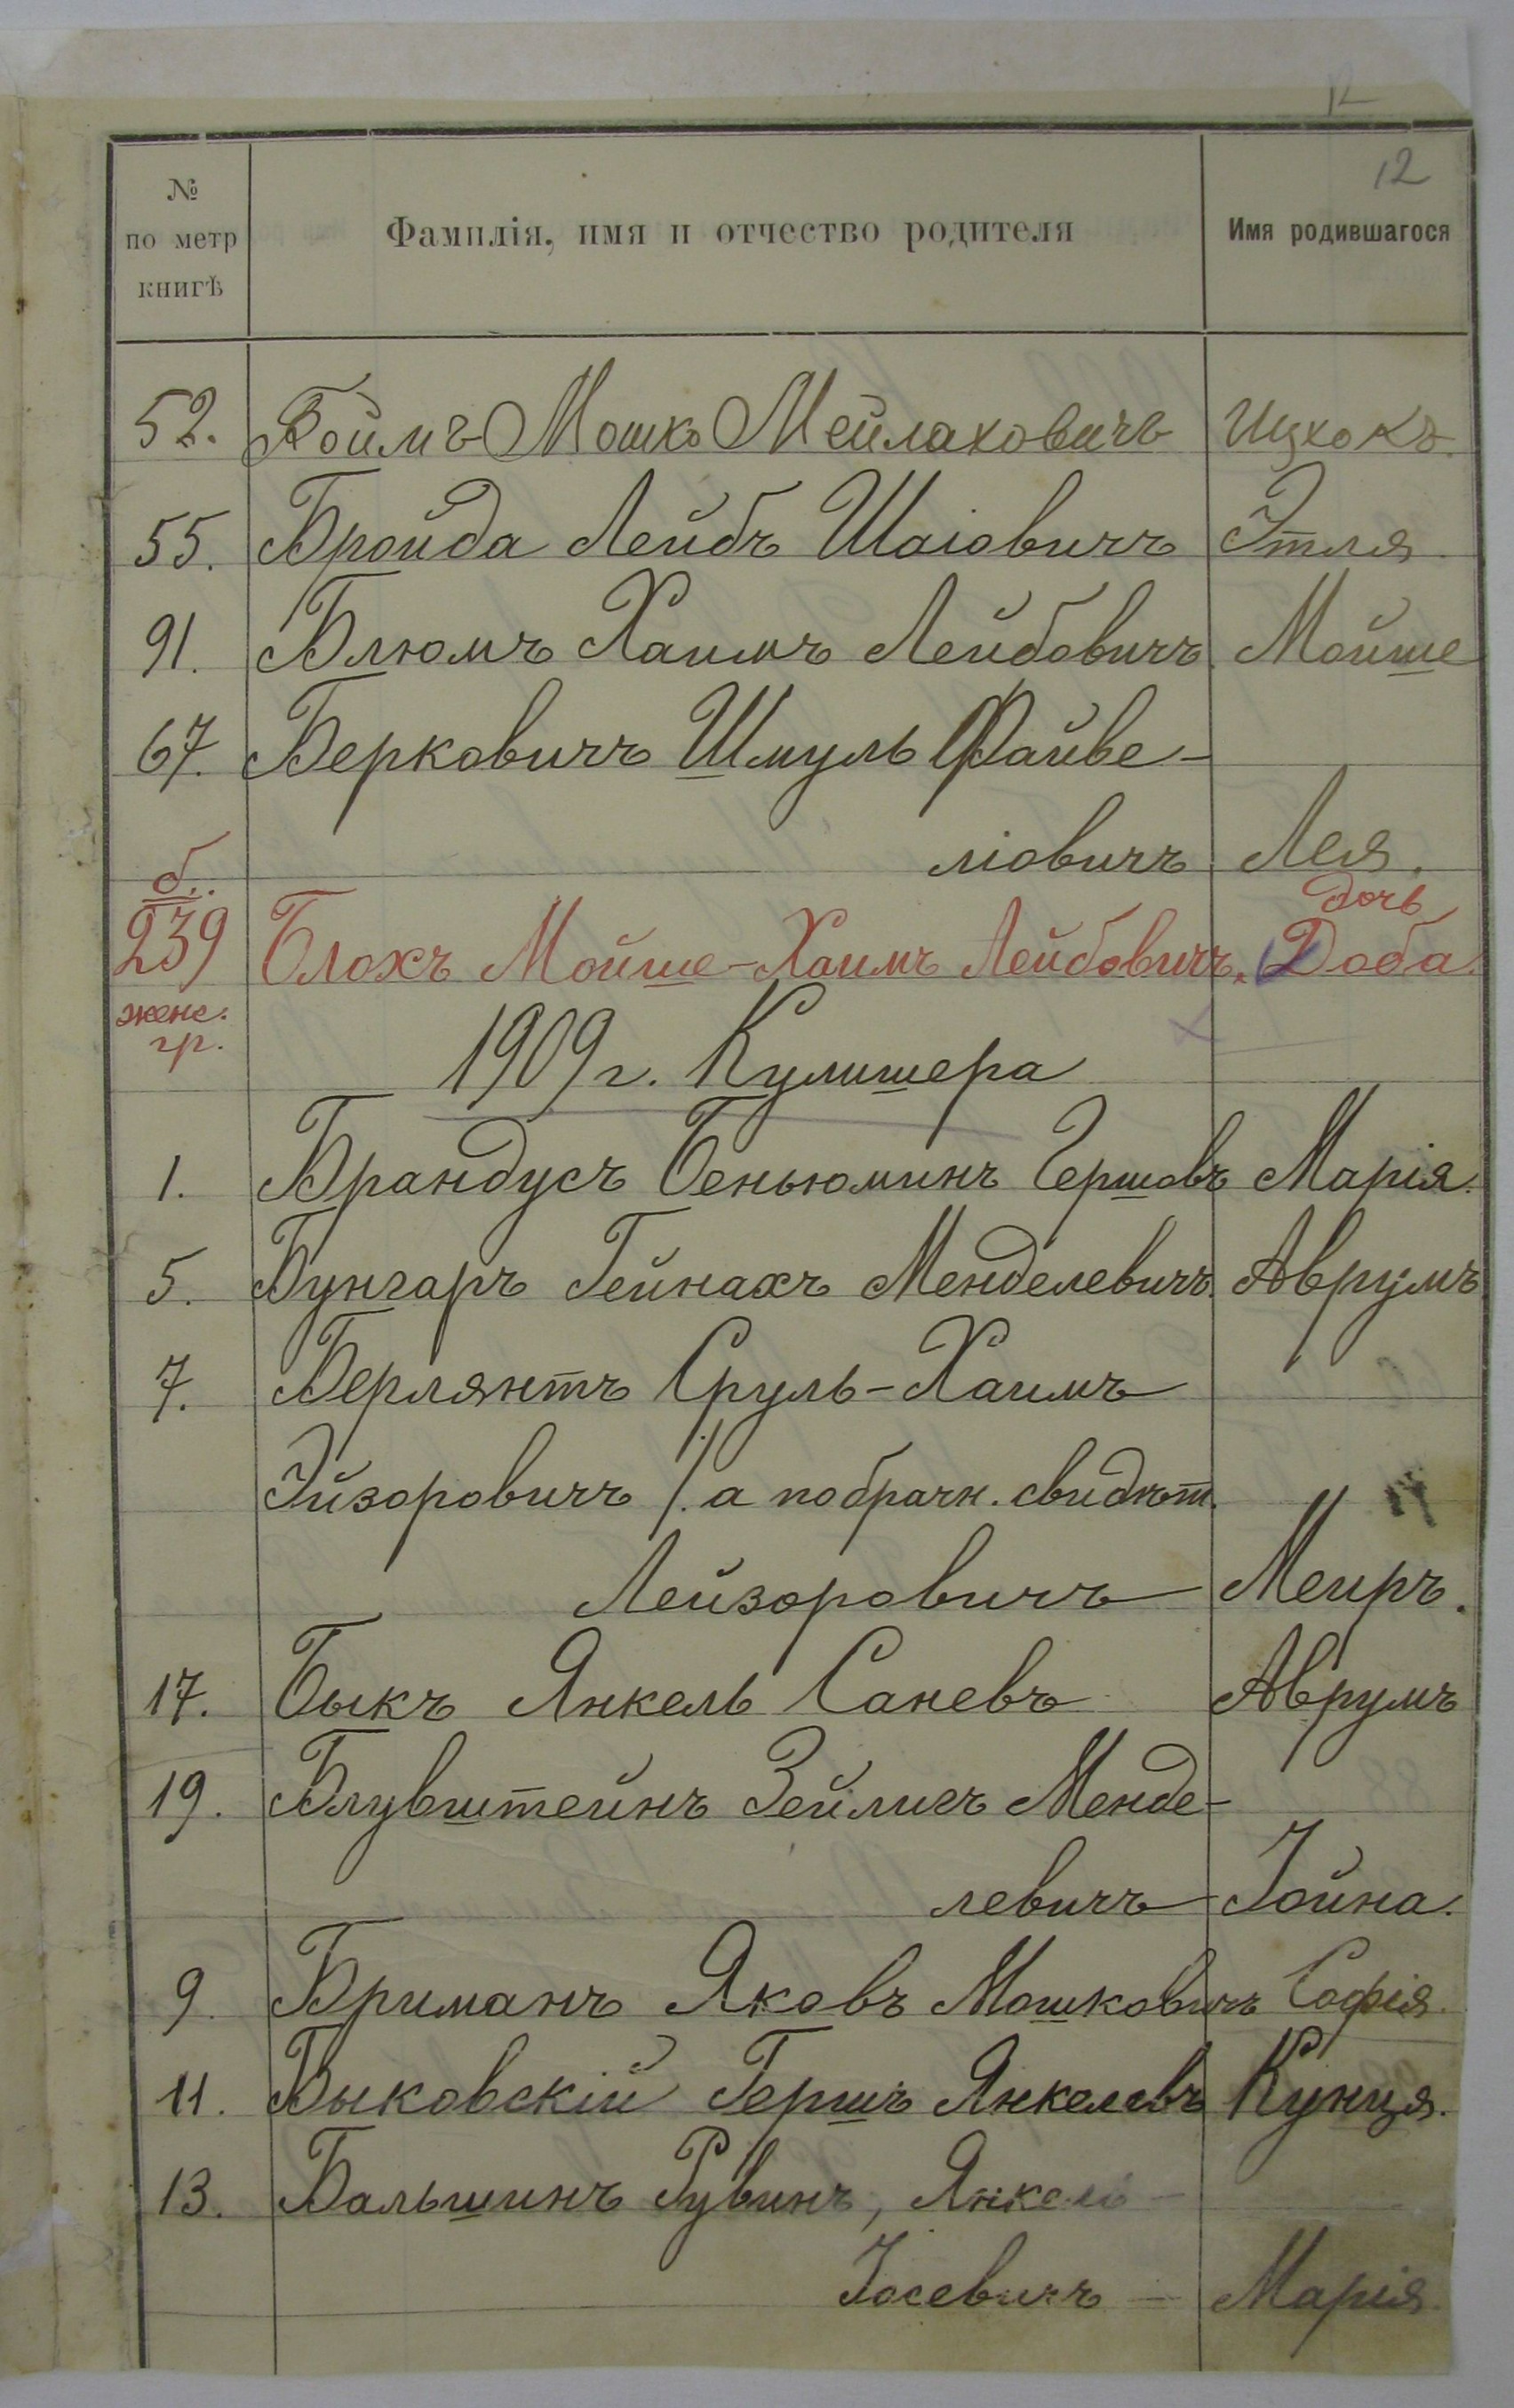 12
12
№ по метр книгѣ Фамилія, имя и отчество родителя Имя родившагося
52. Боймъ Мошко Мейлаховичъ Ицхокъ.
55. Бройда Лейбъ Шаіовичъ Этля.
91. Блюмъ Хаимъ Лейбовичъ Мойше
67. Берковичъ Шмуль Файве-
ліовичъ Лея.
б..
дочь
239 Блохъ Мойше-Хаимъ Лейбовичъ. Доба.
женс.
гр.
1909 г. Кулишера
1. Брандусъ Беньюминъ Гершовъ Марія.
5. Бунгаръ Гейнахъ Менделевичъ. Аврумъ
7. Берлянтъ Сруль-Хаимъ
Эйзоровичъ /. а по брачн. свидѣт.
Лейзоровичъ Меиръ.
17. Быкъ Янкель Саневъ Аврумъ
19. Блувштейнъ Зейлигъ Менде-
левичъ Іойна.
9. Бриманъ Яковъ Мошковичъ Софія.
11. Быковскій Гершъ Янкелевъ Кунця.
13. Бальшинъ Рувинъ, Янкель-
Іосевичъ — Марія.